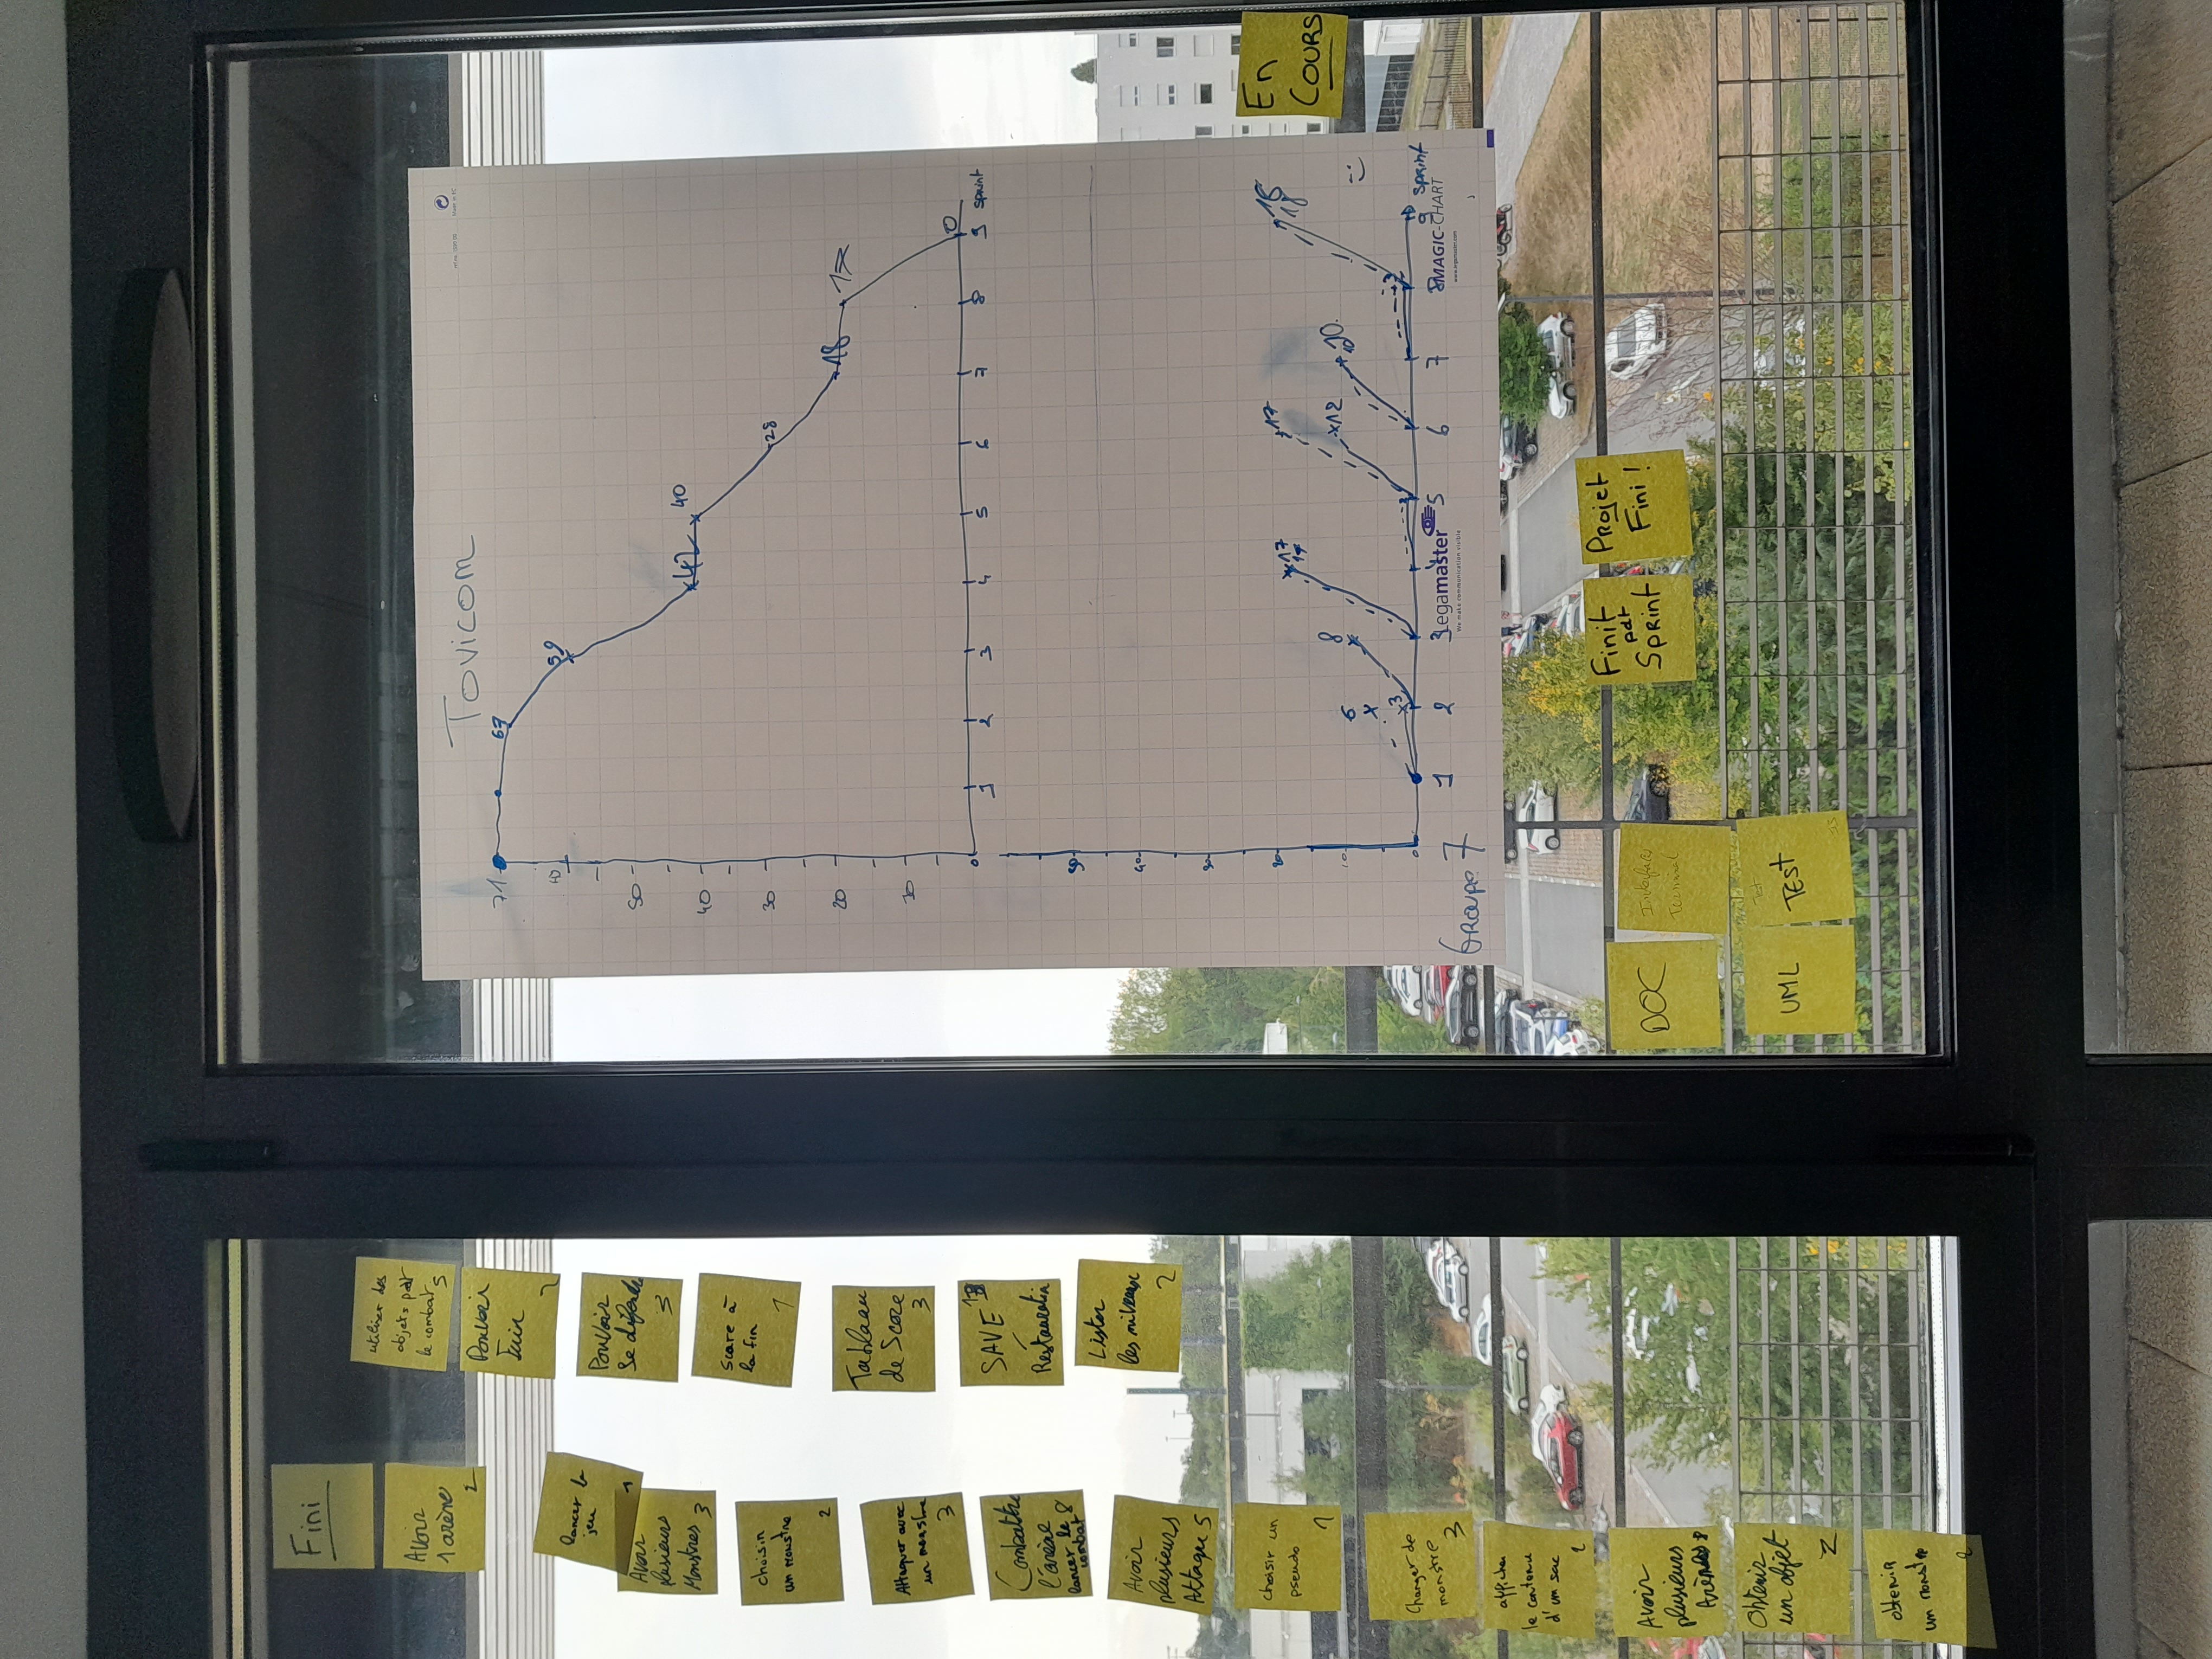 Fini
Avoir
1 arène
2
lancer le
jeu
1
Avoir
plusieurs
Monstres 3
choisir
un monstre
2
Attaquer avec
un monstre
3
Combattre
l'arène
lancer le 8
combat
Avoir
plusieurs
Attaque 5
choisir un
pseudo
1
Changer de
monstre
3
afficher
le contenu
d'un sac
2
Avoir
plusieurs
Arènes 8
Obtenir
un objet
2
obtenir
un monstre
2
utiliser des
objets pdt
le combat 5
Pouvoir
Fuir
2
Pouvoir
Se défendre
3
score à
la fin
1
Tableau
de Score
3
SAVE
/
Restauration
Lister
les niveaux
2
Tovicom
Made in EC
71
67
59
50
42
40
40
30
28
20
18
17
10
0
0
1 2 3 4 5 6 7 8 9 sprint
50
40
30
20
10
0
6
3
8
17
17
17
12
10
10
3
18
1 2 3 4 5 6 7 8 9 sprint
Groupe 7
Legamaster
We make communication visible
MAGIC-CHART
www.legamaster.com
En
COURS
DOC
Interfaces
Terminal
UML
Test
TEST
Finit
pdt
Sprint
Projet
Fini !